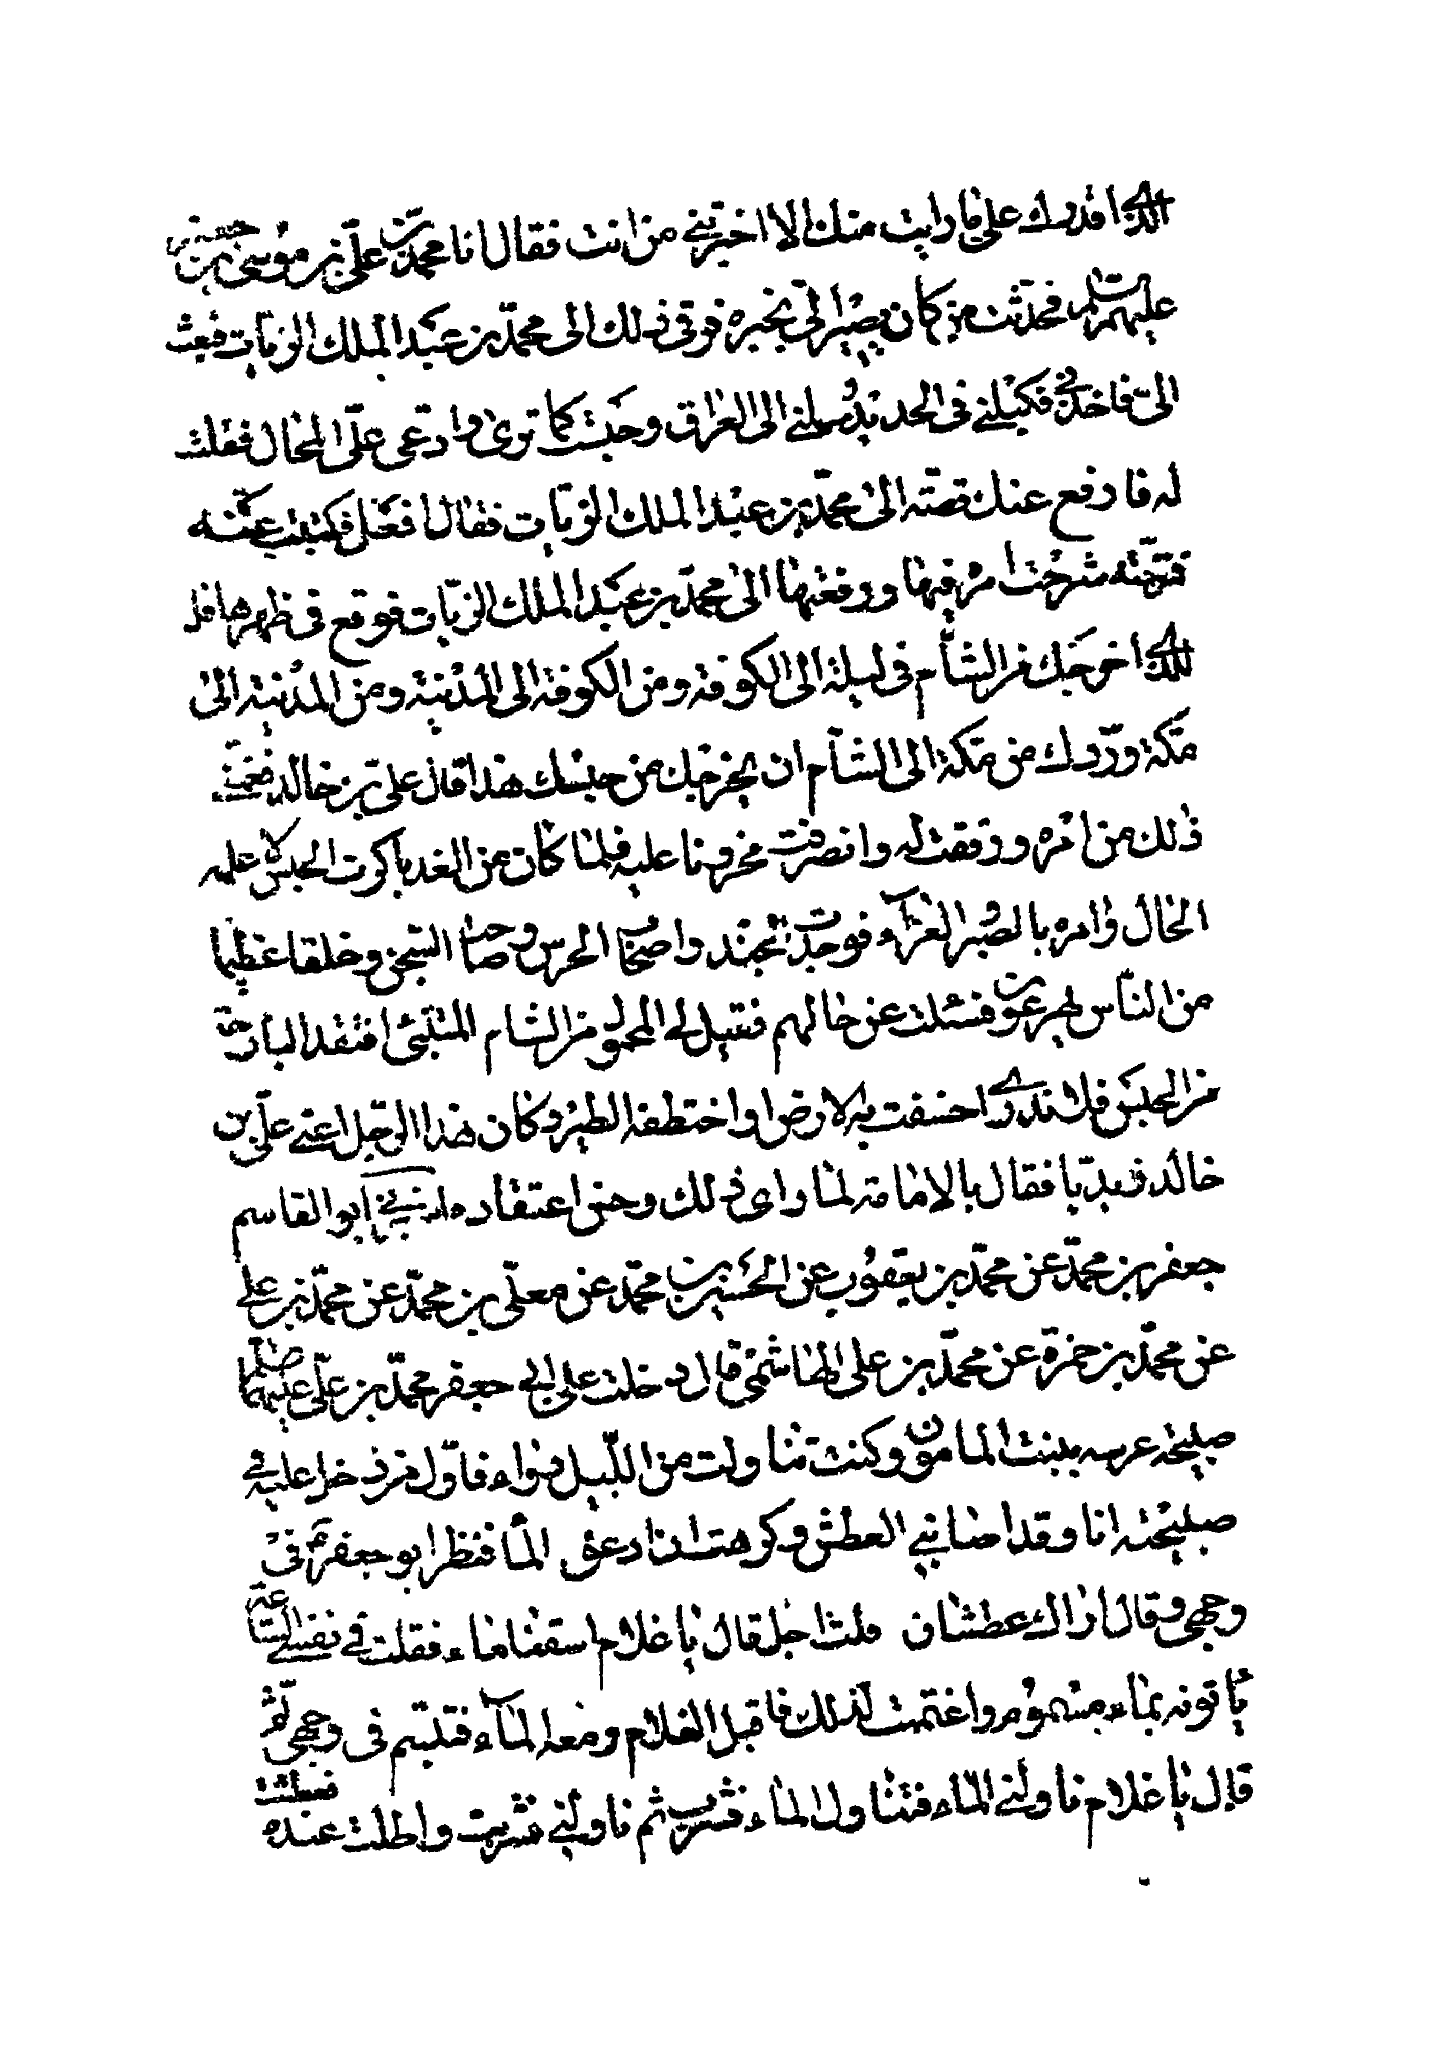 الذي اقدرك على ما رايت منك الا اخبرتني من انت فقال انا محمد بن علي بن موسى بن جعفر
عليهم السلم فحدثت من كان يصير الي بخبره فرقى ذلك الى محمد بن عبد الملك الزيات فبعث
الي فاخذني فكبلني في الحديد وحملني الى العراق وحبست كما ترى وادعى علي المحال فقلت
له فارفع عنك قصته الى محمد بن عبد الملك الزيات فقال افعل فكتبت عنه
قصته شرحت امره فيها ورفعتها الى محمد بن عبد الملك الزيات فوقع في ظهرها قل
للذي اخرجك من الشام في ليلة الى الكوفة ومن الكوفة الى المدينة ومن المدينة الى
مكة وردك من مكة الى الشام ان يخرجك من حبسك هذا قال علي بن خالد فغمني
ذلك من امره ورققت له وانصرفت محزونا عليه فلما كان من الغد باكرت الحبس لاعلمه
الحال وامره بالصبر والعزاء فوجدت الجند واصحاب الحرس وصاحب السجن وخلقا عظيما
من الناس يهرعون فسئلت عن حالهم فقيل لي المحمول من الشام المتنبئ افتقد البارحة
من الحبس فلا ندري اخسفت به الارض او اختطفه الطير وكان هذا الرجل اعني علي بن
خالد زيديا فقال بالامامة لما راى ذلك وحسن اعتقاده اخبرني ابو القاسم
جعفر بن محمد عن محمد بن يعقوب عن الحسين بن محمد عن معلى بن محمد عن محمد بن علي
عن محمد بن حمزة عن محمد بن علي الهاشمي قال دخلت على ابي جعفر محمد بن علي عليهما السلم
صبيحة عرسه ببنت المامون وكنت تناولت من الليل دواء فاول من دخل عليه في
صبيحته انا وقد اصابني العطش وكرهت ان ادعو الماء فنظر ابو جعفر ع في
وجهي وقال اراك عطشان قلت اجل قال يا غلام اسقنا ماء فقلت في نفسي الساعة
ياتونه بماء مسموم واغتممت لذلك فاقبل الغلام ومعه الماء فتبسم في وجهي ثم
قال يا غلام ناولني الماء فتناول الماء فشرب ثم ناولني فشربت واطلت عنده فعطشت